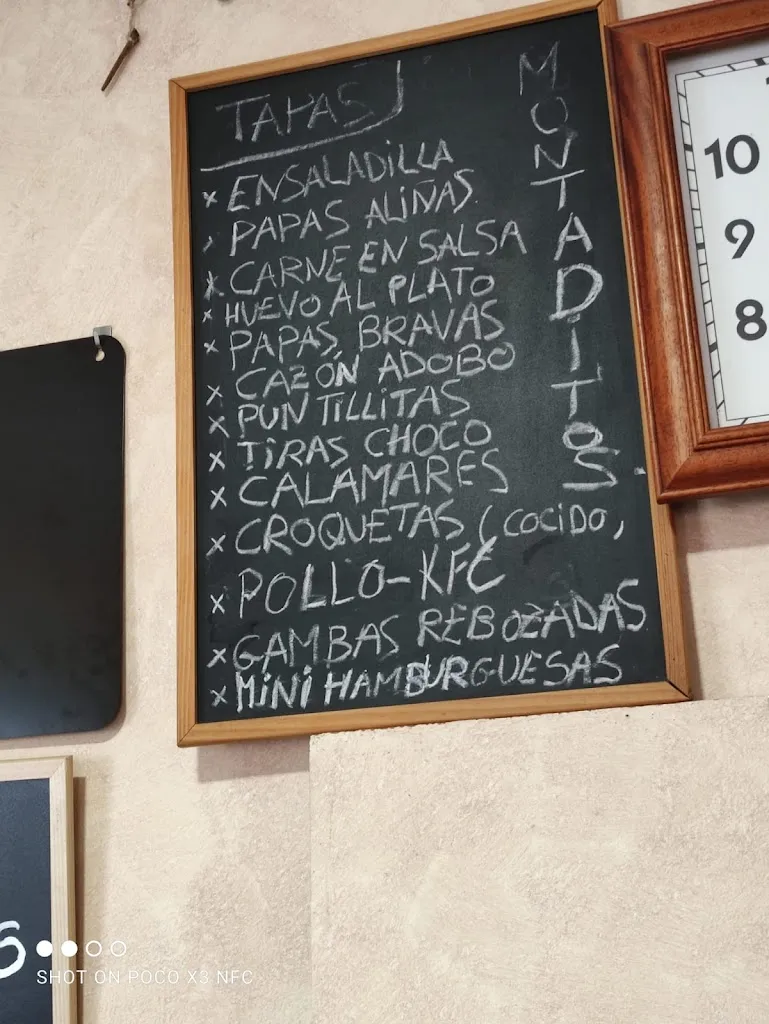 TAPAS
ENSALADILLA
PAPAS ALIÑAS
x CARNE EN SALSA
x HUEVO AL PLATO
x PAPAS BRAVAS
x CAZÓN ADOBO
x PUNTILLITAS
x TIRAS CHOCO
x CALAMARES
x CROQUETAS (COCIDO,
x POLLO-KFC
x GAMBAS REBOZADAS
x MINI HAMBURGUESAS
MONTADITOS
10
9
8
S
SHOT ON POCO X3 NFC